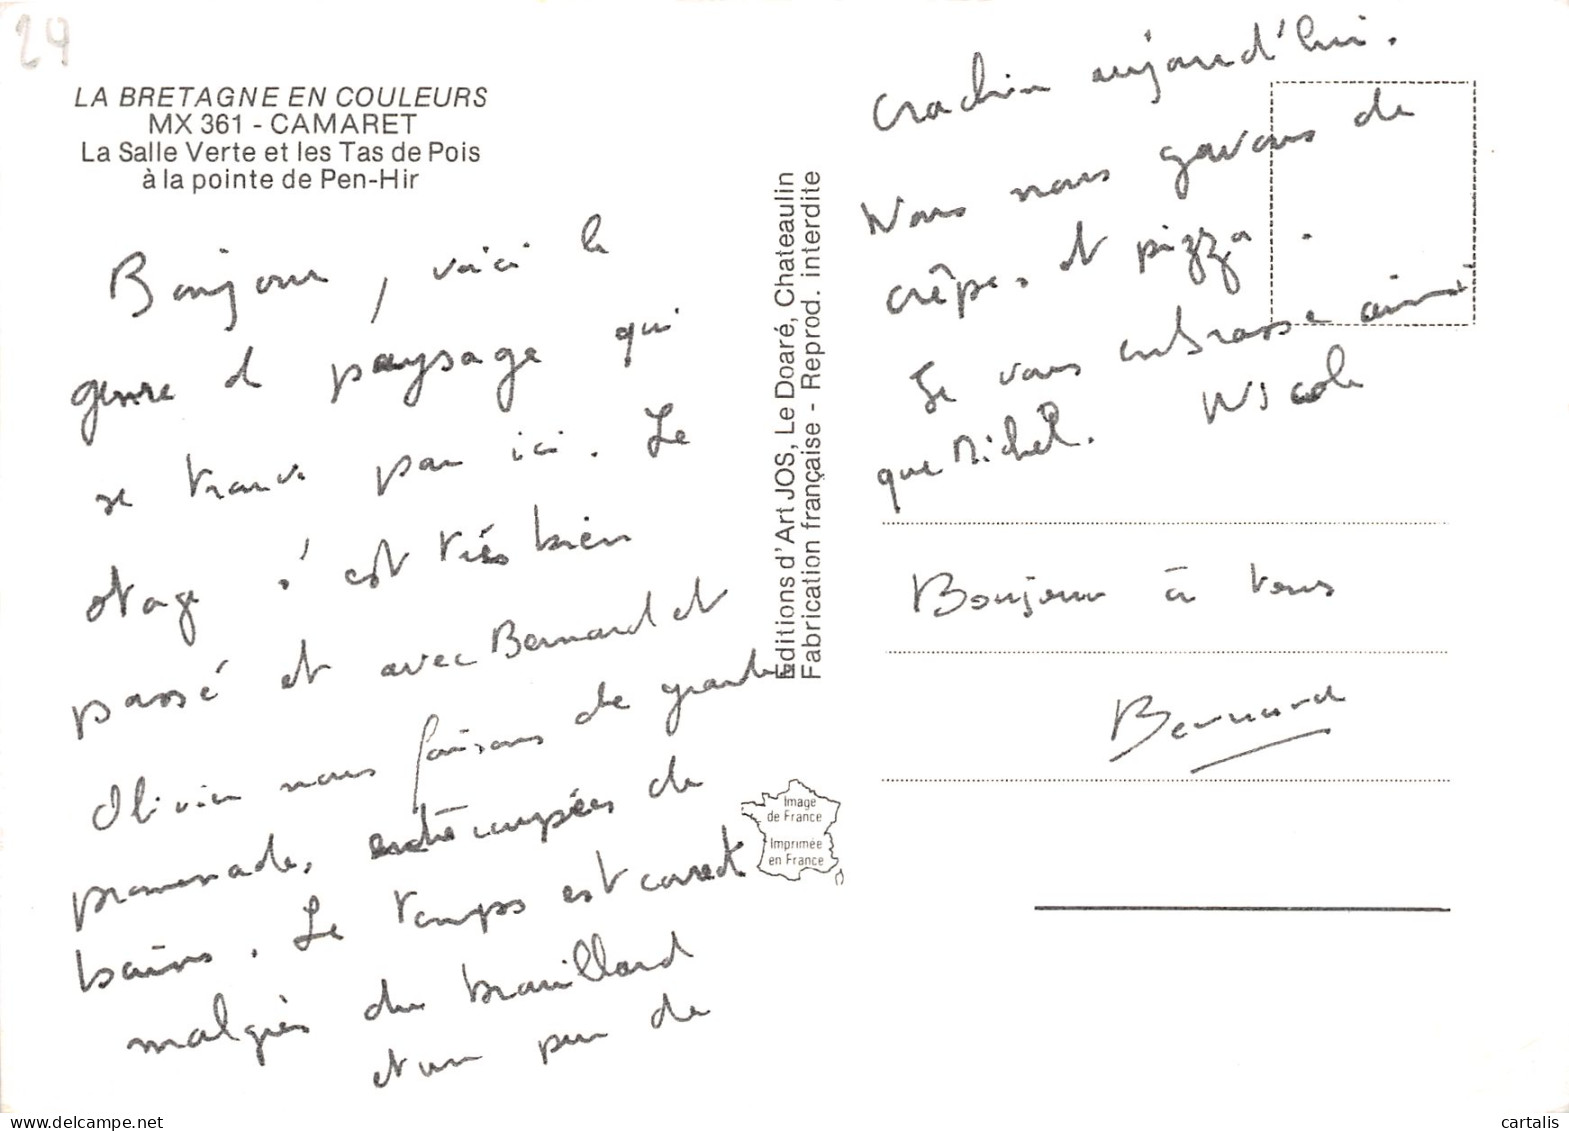 24
LA BRETAGNE EN COULEURS
MX 361 - CAMARET
La Salle Verte et les Tas de Pois
à la pointe de Pen-Hir
Bonjour, voici le
genre de paysage qui
se trouve par ici. Le
stage s'est très bien
passé et avec Bernard et
Olivier nous faisons de grandes
promenades, entrecoupées de
bains. Le temps est correct
malgrès du brouillard
et un peu de
crachin aujourd'hui.
Nous nous gavons de
crêpes et pizza.
Je vous embrasse ainsi
que Michel. Nicole
Bonjour à tous
Bernard
Editions d'Art JOS, Le Doaré, Chateaulin
Fabrication française - Reprod. interdite
Image
de France
Imprimée
en France
cartalis